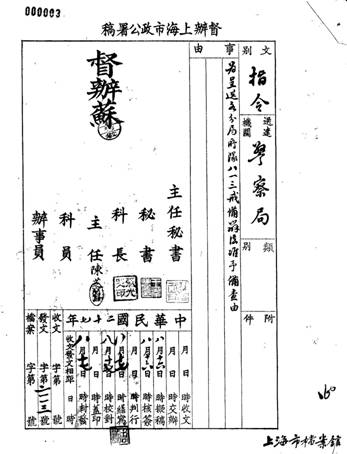 000003
督辦上海市政公署稿
文別
指令
送達機關
警察局
類別
附件
事由
為呈送各分局所隊八一三戒備辦法准予備查由
督辦蘇
主任秘書
秘書
科長
主任 陳
科員
辦事員
中華民國二十七年
月 日 時收文
月 日 時交辦
八月十六日 時擬稿
八月十六日 時核簽
月 日 時判行
八月 日 時繕寫
八月 日 時校對
月 日 時蓋印
八月 日 時封發
收文發文相距 日 時
收文 字第 號
發文 字第二一三號
檔案 字第 號
上海市檔案館